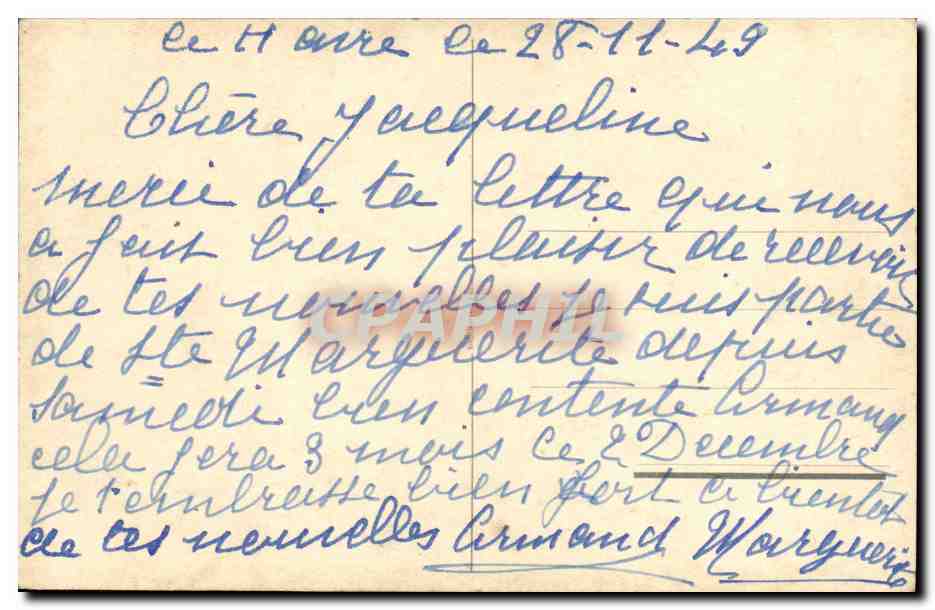 Le Havre Le 28-11-49
Chère Jacqueline
merci de ta lettre qui nous
a fait bien plaisir de recevoir
de tes nouvelles je suis partie
de Ste Marguerite depuis
samedi bien contente Armand
cela fera 3 mois Le 2 Decembre
je t'embrasse bien fort a bientot
de tes nouvelles Armand Marguerite
CPAPHIL